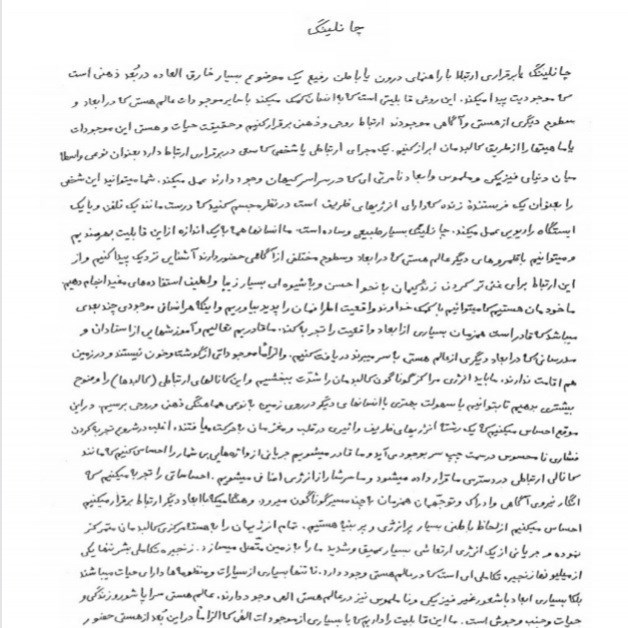 چانلینگ
چانلینگ یا برقراری ارتباط با راهنمای درون یا با جان رفیع یک موضوع بسیار خارق العاده در بُعد ذهنی است
که موجودیت پیدا میکند. این روش قابلیتی است که به انسان کمک میکند با سایر موجودات عالم هستی که در ابعاد و
سطوح دیگری از هستی و آگاهی موجودند ارتباط روحی و ذهنی برقرار کنیم و حقیقت حیات و هستی این موجودات
یا ماهیتها را از طریق کالبدمان ابراز کنیم. یک مجرای ارتباطی یا شخصی که سعی در برقراری ارتباط دارد بعنوان نوعی واسطه
میان دنیای فیزیکی و ملموس و ابعاد نامرئی ای که در سراسر کیهان وجود دارند عمل میکند. شما میتوانید این شخص
را بعنوان یک فرستنده زنده که دارای انرژیهای ظریف است در نظر مجسم کنید که درست مانند یک تلفن و یا یک
ایستگاه رادیویی عمل میکند. چانلینگ بسیار طبیعی و ساده است. ما انسانها همه با یک اندازه از این قابلیت بهره‌مندیم
و میتوانیم با قلمروهای دیگر عالم هستی که در ابعاد و سطوح مختلفی از آگاهی حضور دارند آشنایی نزدیک پیدا کنیم و از
این ارتباط برای غنی تر کردن زندگیمان با نحو احسن و با شیوه ای بسیار زیبا و لطیف استفاده های مفید انجام دهیم.
ما خودمان هستیم که میتوانیم با کمک خداوند واقعیت اطرافمان را پدید بیاوریم و اینکه هر انسانی موجودی چند بعدی
میباشد که قادر است همزمان بسیاری از ابعاد واقعیت را تجربه کند. ما قادریم تعالیم و آموزشهایی از استادان و
مدرسانی که در ابعاد دیگری از عالم هستی بسر میبرند دریافت کنیم. و الزاماً موجوداتی از گوشت و خون نیستند و در زمین
هم اقامت ندارند. ما باید انرژی مراکز گوناگون کالبدمان را شدت ببخشیم و این کانالهای ارتباطی (کالبدها) را وضوح
بیشتری بدهیم تا بتوانیم با سهولت بهتری با انسانهای دیگر در روی زمین به نوعی هماهنگی ذهنی و روحی برسیم. در این
موقع احساس میکنیم که یک رشته انرژیهای ظریف و اثیری در قلب و مغزمان به حرکت می‌افتند. اغلب در شروع تجربه کردن
فشاری نامحسوس در سمت چپ سر بوجود می‌آید و ما قادر میشویم جریانی از واژه‌هایی بی شمار را احساس کنیم که مانند
کانالی ارتباطی در دسترس ما قرار داده میشود و ما سرشار از انرژی اضافی میشویم. احساساتی را تجربه میکنیم که
انگار نیروی آگاهی و ادراک و توجهمان همزمان به چند مسیر گوناگون میرود. و هنگامیکه با ابعاد دیگر ارتباط برقرار میکنیم
احساس میکنیم از لحاظ باطنی بسیار پر انرژی و پر بنیه هستیم. تمام انرژیمان را به هسته مرکزی کالبدمان متمرکز
نموده و جریانی از یک انرژی ارتعاشی بسیار عمیق و شدید ما را به زمین متصل میسازد. زنجیره تکاملی بشر تنها یکی
از میلیونها زنجیره تکاملی ای است که در عالم هستی وجود دارد. نه تنها بسیاری از سیارات و منظومه ها دارای حیات میباشند
بلکه بسیاری ابعاد با شعور غیر فیزیکی و نا ملموس نیز در عالم هستی الهی وجود دارند. عالم هستی سراپا شور و زندگی و
حیات و جنب و جوش است. ما این قابلیت را داریم که با بسیاری از موجودات الهی که الزاماً در این بُعد از هستی حضور